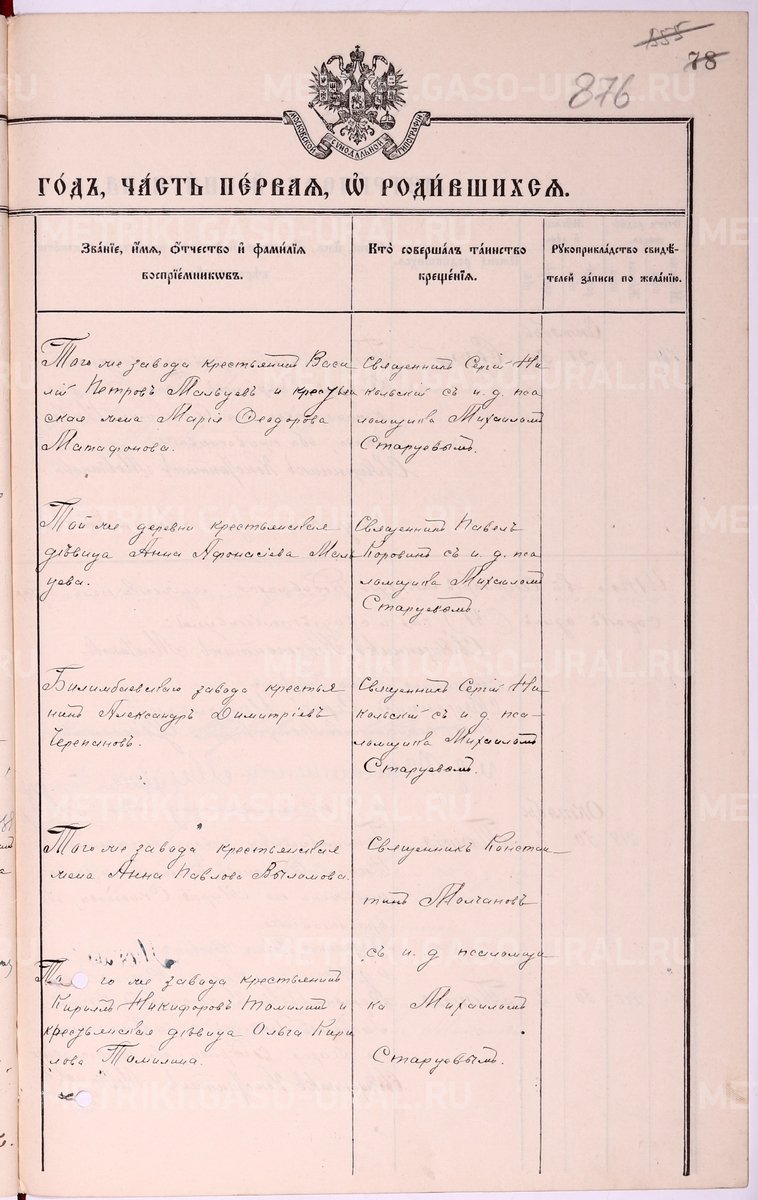 555
78
876
МОСКОВСКОЙ СУНОДАЛЬНОЙ ТИПОГРАФІИ
ГО́ДЪ, ЧА́СТЬ ПЕ́РВАЯ, Ѡ҆ РОДИ́ВШИХСѦ.
Зва́нїе, и҆́мя, ѻ҆́тчество и҆ фами́лїя
воспрїе́мникѡвъ.
Кто̀ соверша́лъ та́инство
креще́нїя.
Рꙋкоприкла́дство свидѣ́-
телей за́писи по жела́нїю.
Того же завода крестьянинъ Васи
лій Петровъ Мальцевъ и крестьян
ская жена Марія Ѳеодорова
Матафонова.
Священникъ Сергій Ни-
кольскій съ и. д. пса-
ломщика Михаиломъ
Старцевымъ.
Той же деревни крестьянская
дѣвица Анна Афонасіева Маль
цева.
Священникъ Павелъ
Коровинъ съ и. д. пса-
ломщика Михаиломъ
Старцевымъ.
Билимбаевскаго завода крестья
нинъ Александръ Димитріевъ
Черепановъ.
Священникъ Сергій Ни-
кольскій съ и. д. пса-
ломщика Михаиломъ
Старцевымъ.
Того же завода крестьянская
жена Анна Павлова
Священникъ Констан-
тинъ Молчановъ
съ и. д. псаломщи-
ка Михаиломъ
Старцевымъ.
То го же завода крестьянинъ
Кириллъ Никифоровъ Томилинъ и
крестьянская дѣвица Ольга Кири
лова Томилина.
METRIKI.GASO-URAL.RU